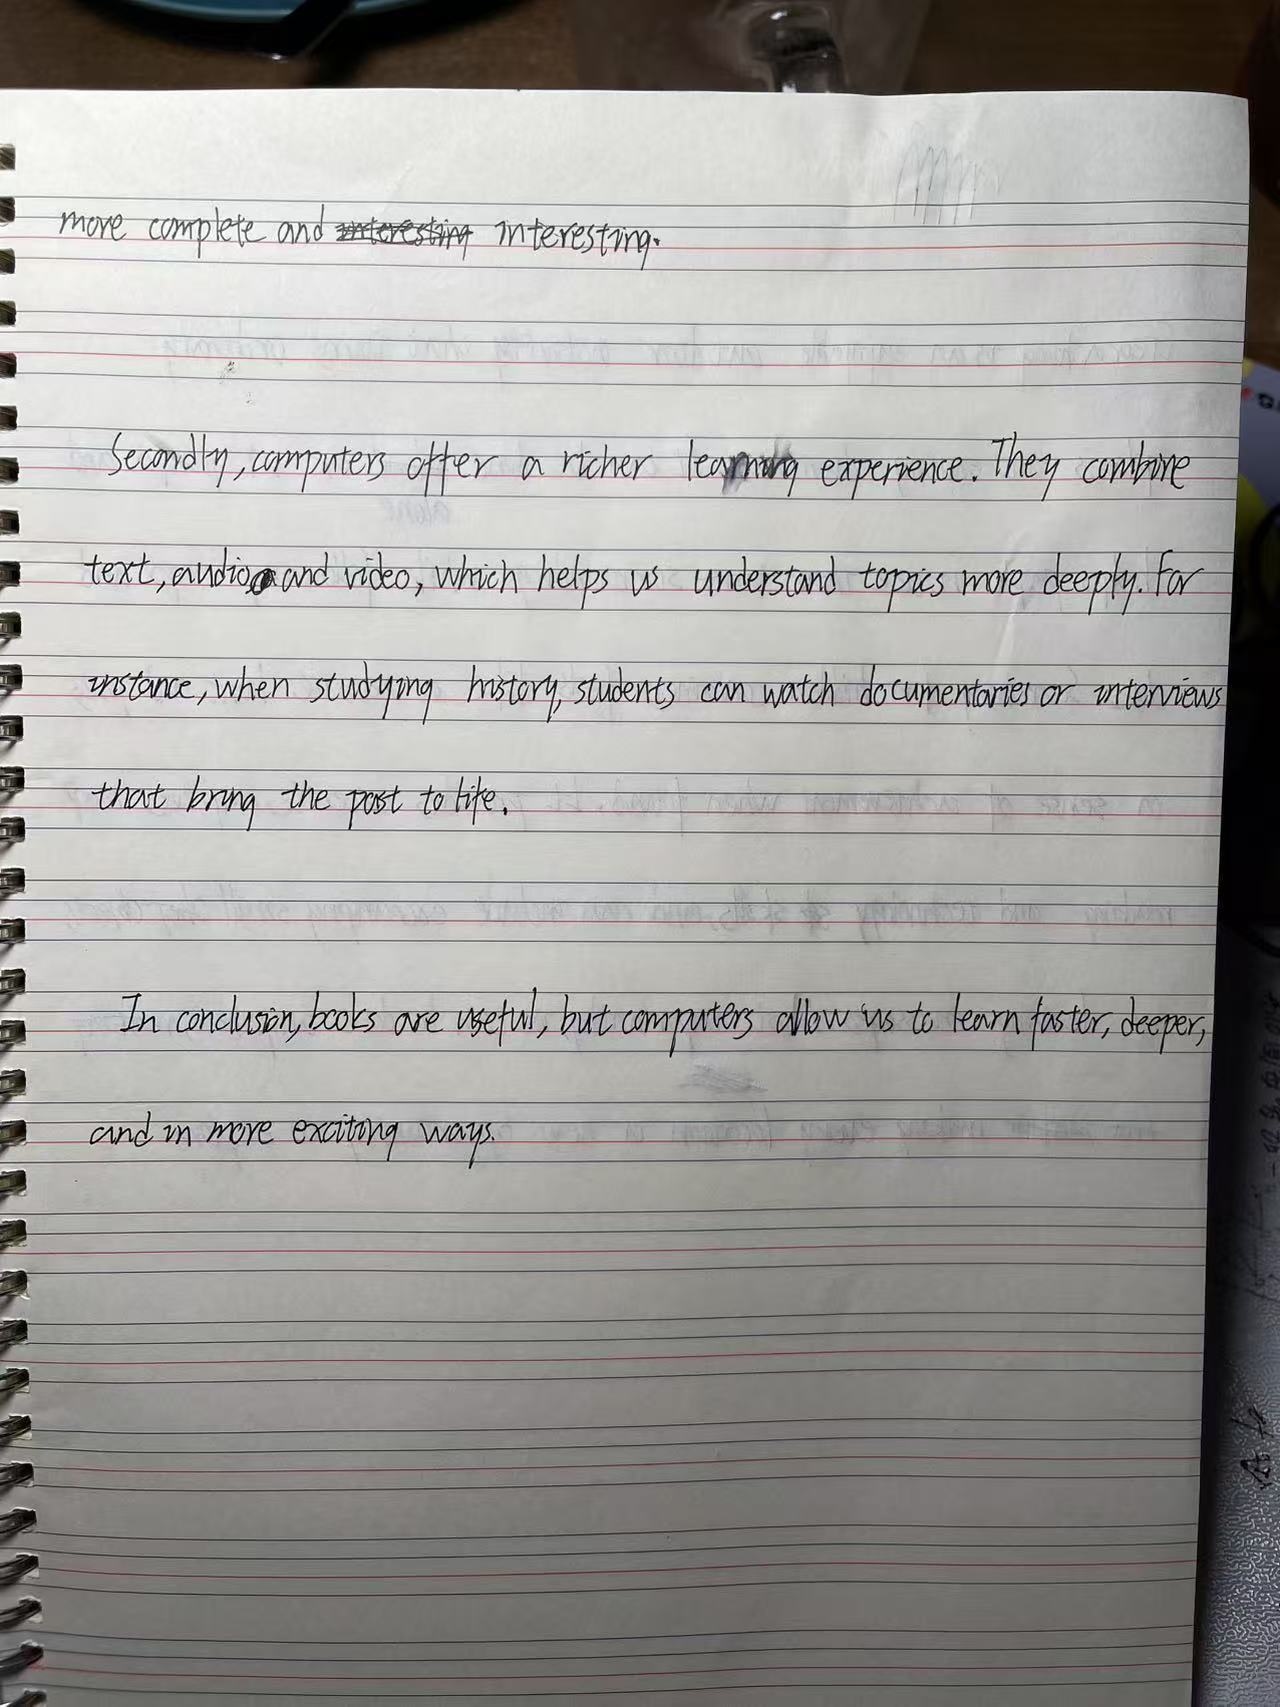 more complete and interesting interesting.
Secondly, computers offer a richer learning experience. They combine
text, audio and video, which helps us understand topics more deeply. For
instance, when studying history, students can watch documentaries or interviews
that bring the past to life.
In conclusion, books are useful, but computers allow us to learn faster, deeper,
and in more exciting ways.